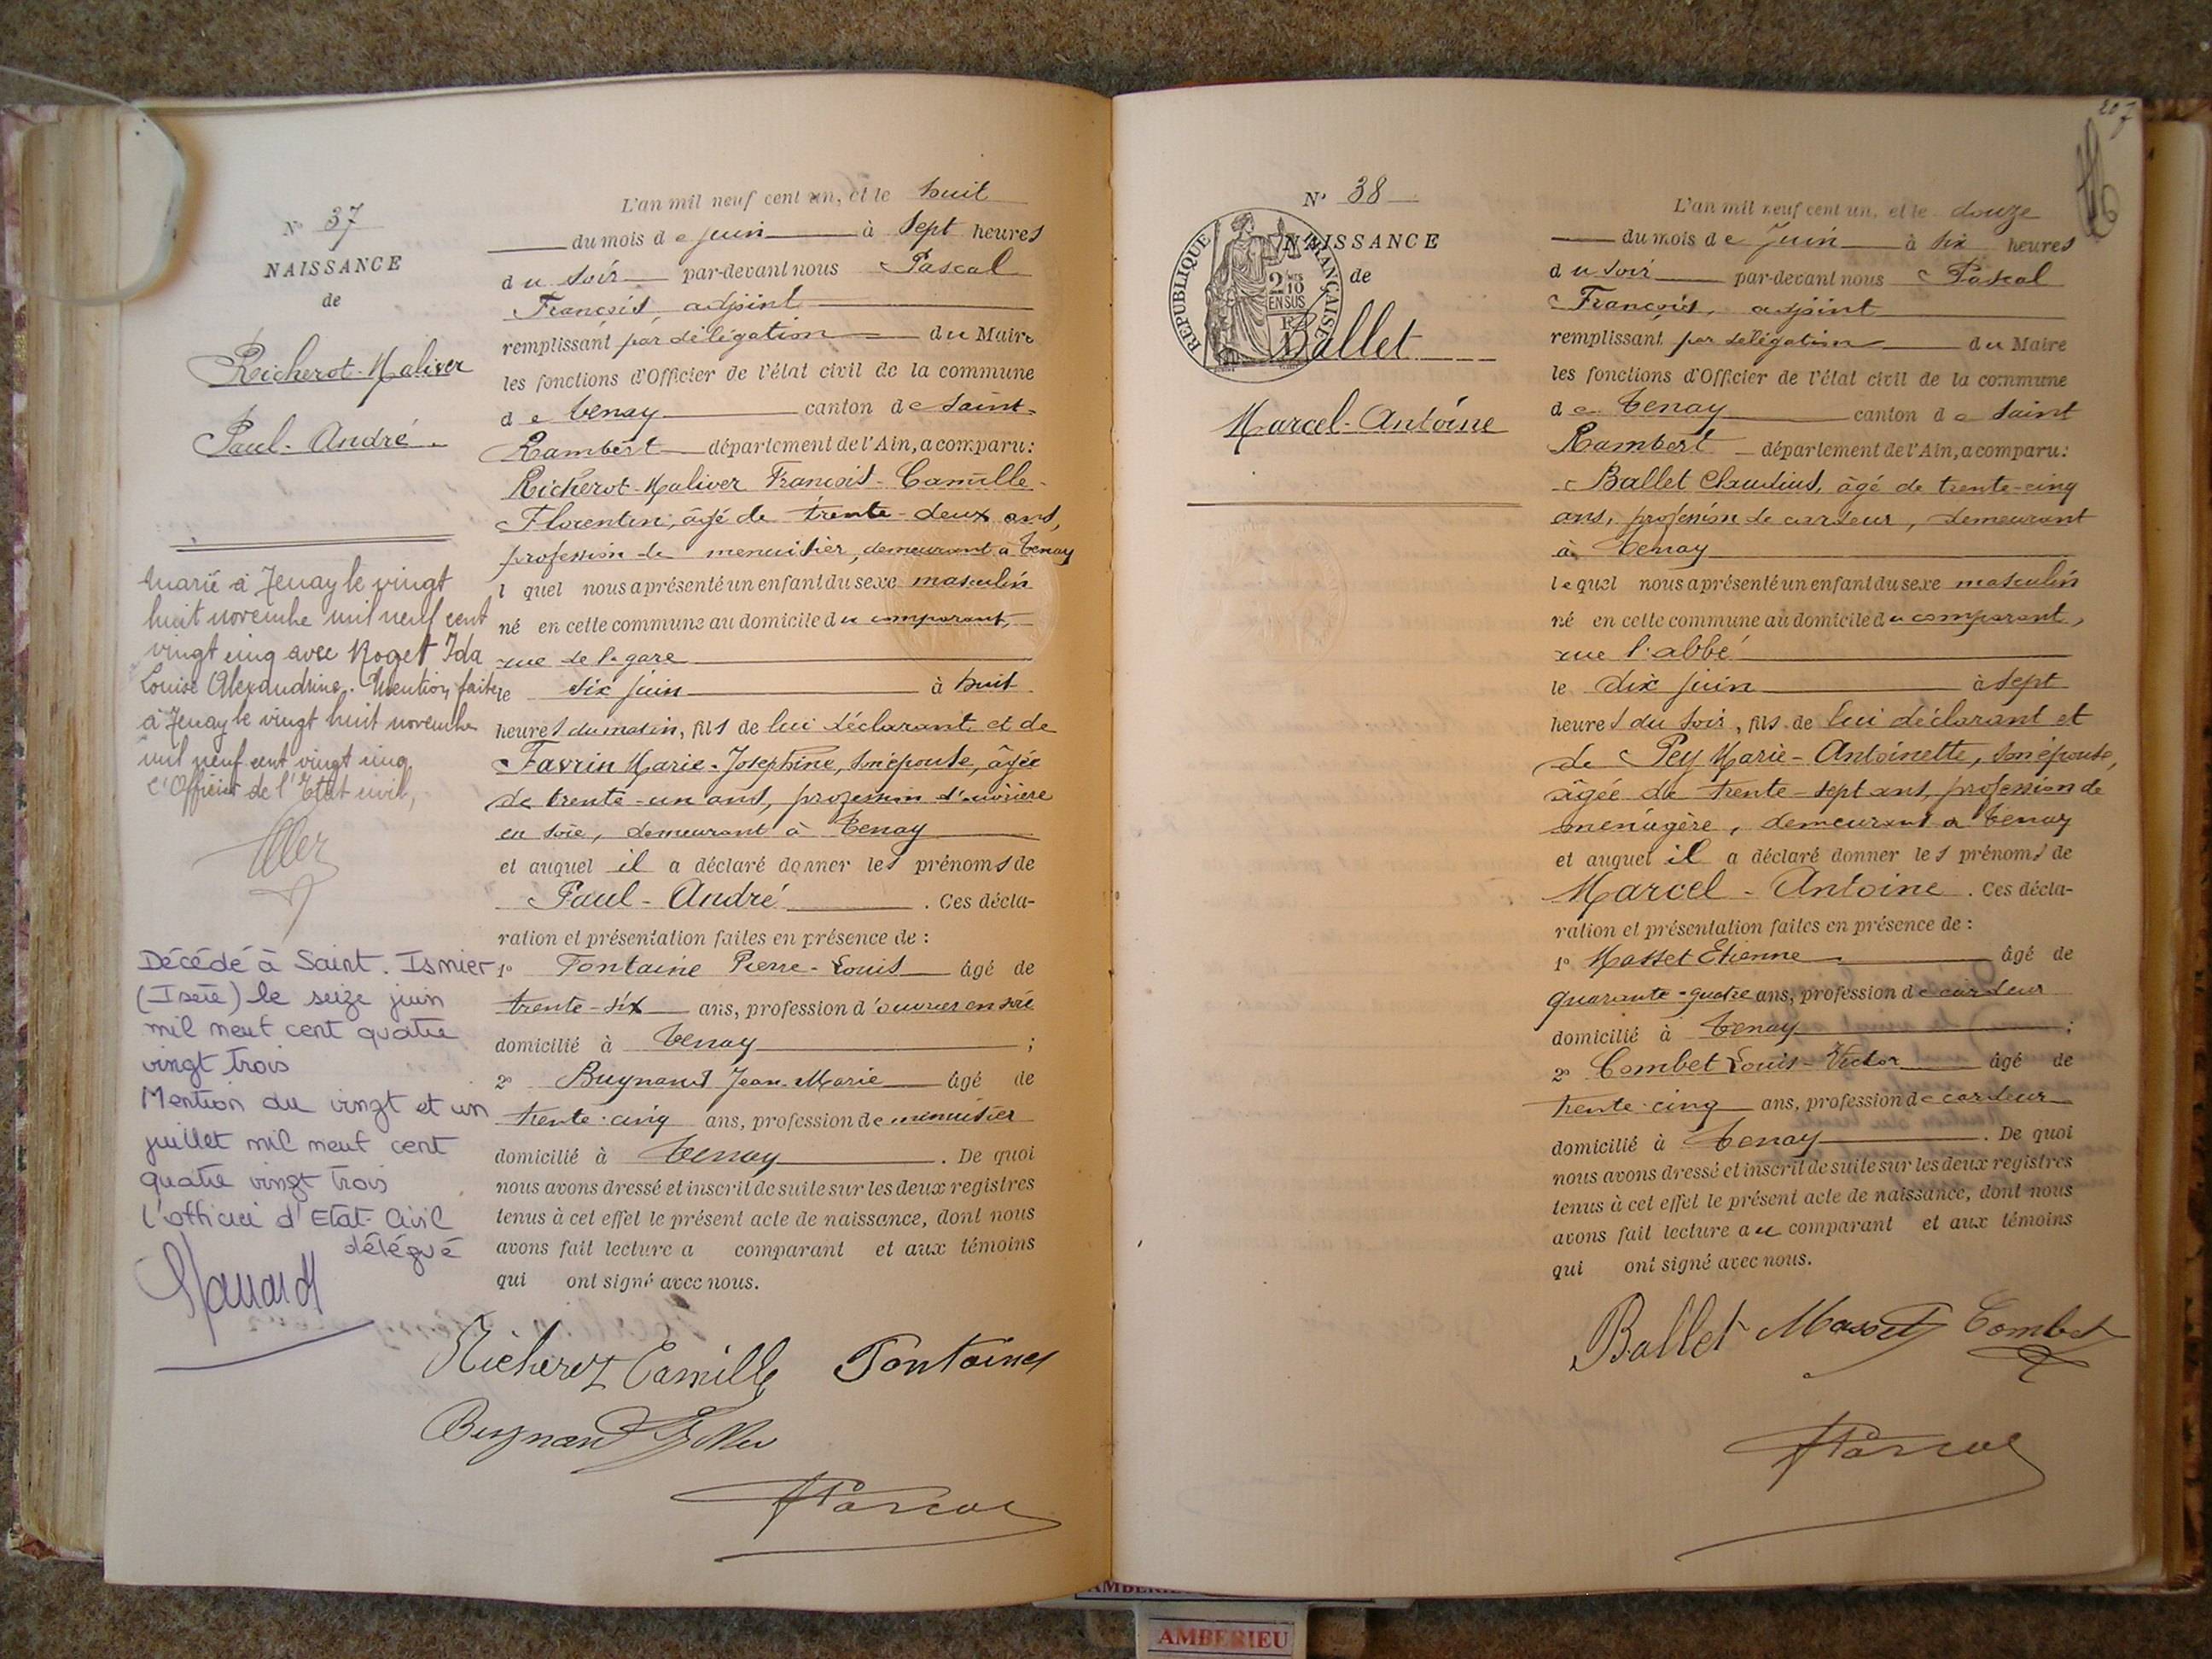 N° 37
NAISSANCE
de
Richerot-Maliver
Paul-André
Marié à Tenay le vingt
huit novembre mil neuf cent
vingt cinq avec Roget Ida
Louise Alexandrine. Mention faite
à Tenay le vingt huit novembre
mil neuf cent vingt cinq.
L'Officier de l'Etat civil,
Décédé à Saint. Ismier
(Isère) le seize juin
mil neuf cent quatre
vingt trois
Mention du vingt et un
juillet mil neuf cent
quatre vingt trois
l'officier d'Etat-Civil
délégué
L'an mil neuf cent un, et le huit
du mois de juin à sept heures
du soir par-devant nous Pascal
François, adjoint
remplissant par délégation du Maire
les fonctions d'Officier de l'état civil de la commune
de Tenay canton de Saint-
Rambert département de l'Ain, a comparu:
Richerot-Maliver François-Camille-
Florentin, âgé de trente-deux ans,
profession de menuisier, demeurant à Tenay
l quel nous a présenté un enfant du sexe masculin
né en cette commune au domicile du comparant,
rue de la gare
le dix juin à huit
heures du matin, fils de lui déclarant et de
Favrin Marie-Josephine, son épouse, âgée
de trente-un ans, profession d'ouvrière
en soie, demeurant à Tenay
et auquel il a déclaré donner les prénoms de
Paul-André. Ces décla-
ration et présentation faites en présence de:
1° Fontaine Pierre-Louis âgé de
trente-six ans, profession d'ouvrier en soie
domicilié à Tenay;
2° Bugnand Jean-Marie âgé de
trente-cinq ans, profession de menuisier
domicilié à Tenay. De quoi
nous avons dressé et inscrit de suite sur les deux registres
tenus à cet effet le présent acte de naissance, dont nous
avons fait lecture a comparant et aux témoins
qui ont signé avec nous.
Richerot Camille Fontaine
Bugnand
Pascal
207
N° 38
REPUBLIQUE FRANÇAISE
2/10
EN SUS
NAISSANCE
de
Ballet
Marcel-Antoine
L'an mil neuf cent un, et le douze
du mois de Juin à six heures
du soir par-devant nous Pascal
François, adjoint
remplissant par délégation du Maire
les fonctions d'Officier de l'état civil de la commune
de Tenay canton de Saint
Rambert département de l'Ain, a comparu:
Ballet Claudius, âgé de trente-cinq
ans, profession de cardeur, demeurant
à Tenay
lequel nous a présenté un enfant du sexe masculin
né en cette commune au domicile du comparant,
rue l'abbé
le dix juin à sept
heures du soir, fils de lui déclarant et
de Pey Marie-Antoinette, son épouse,
âgée de trente-sept ans, profession de
ménagère, demeurant à Tenay
et auquel il a déclaré donner les prénoms de
Marcel-Antoine. Ces décla-
ration et présentation faites en présence de:
1° Masset Etienne âgé de
quarante-quatre ans, profession de cardeur
domicilié à Tenay;
2° Combet Louis-Victor âgé de
trente-cinq ans, profession de cardeur
domicilié à Tenay. De quoi
nous avons dressé et inscrit de suite sur les deux registres
tenus à cet effet le présent acte de naissance, dont nous
avons fait lecture au comparant et aux témoins
qui ont signé avec nous.
Ballet Masset Combet
Pascal
AMBERIEU